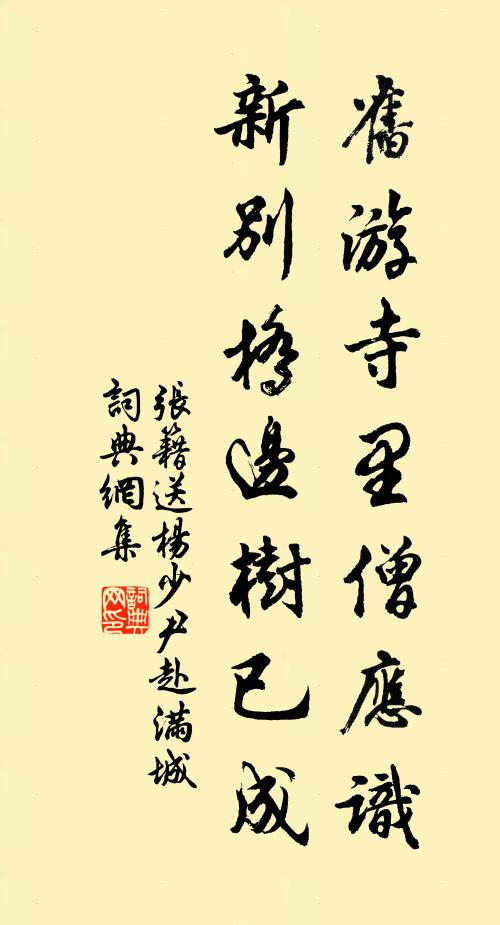 舊游寺里僧應識
新別橋邊樹已成
張籍送楊少尹赴滿城
詞典網集
詞典网印